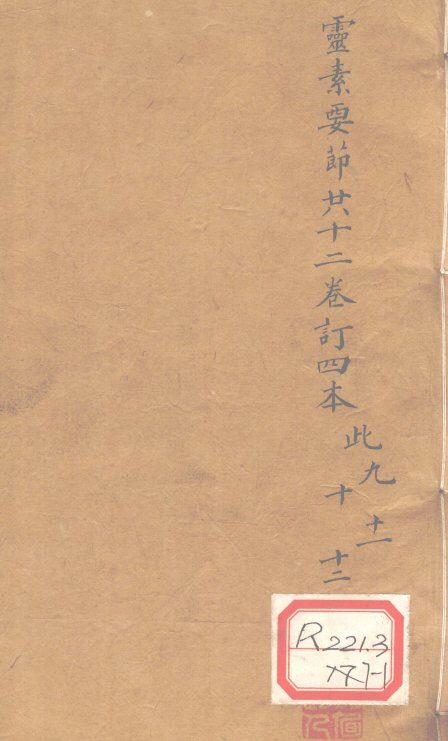 靈素要節共十二卷訂四本
此九十十一十二
R221.3